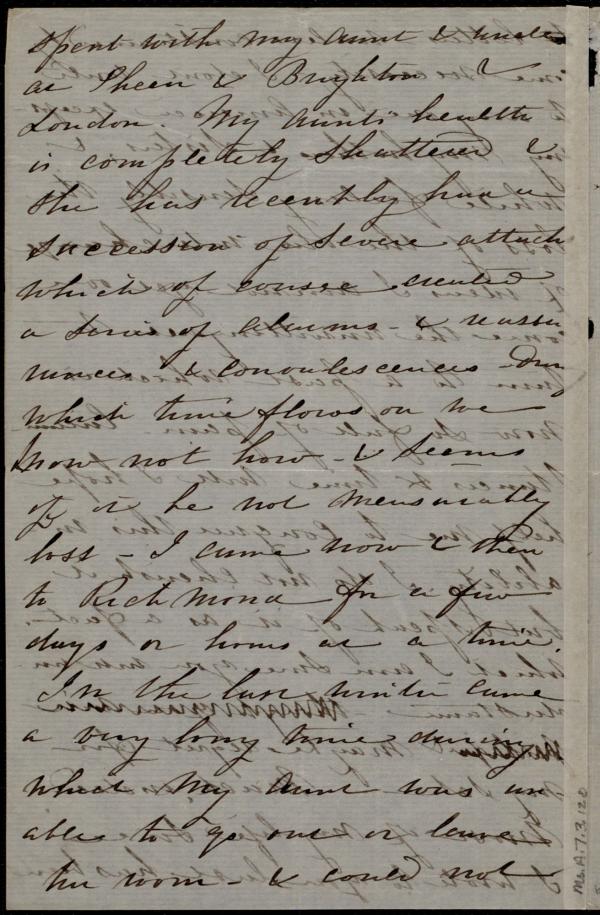 spent with my aunt & uncle
at Sheen & Brighton &
London. My aunt's health
is completely shattered &
she has recently had a
succession of severe attack
which of course created
a series of alarms - & reassu
rances & convalescences - During
which time flows on we
know not how - & seems
if it be not measurably
loss - I came now & then
to Richmond for a few
days or hours at a time.
In the last winter came
a very long time during
which my Aunt was un-
able to go out or leave
the room - & could not
Ms. A. 7. 3. 120